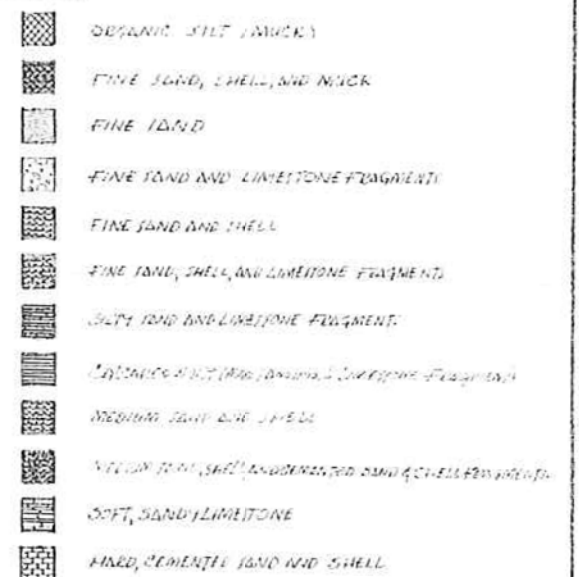 ORGANIC SILT (MUCK)
FINE SAND, SHELL, AND MUCK
FINE SAND
FINE SAND AND LIMESTONE FRAGMENTS
FINE SAND AND SHELL
FINE SAND, SHELL, AND LIMESTONE FRAGMENTS
SILTY SAND AND LIMESTONE FRAGMENTS
CALCAREOUS SILT LIMESTONE FRAGMENTS
MEDIUM SAND AND SHELL
MEDIUM SAND, SHELL, AND CEMENTED SAND & SHELL FRAGMENTS
SOFT, SANDY LIMESTONE
HARD, CEMENTED SAND AND SHELL